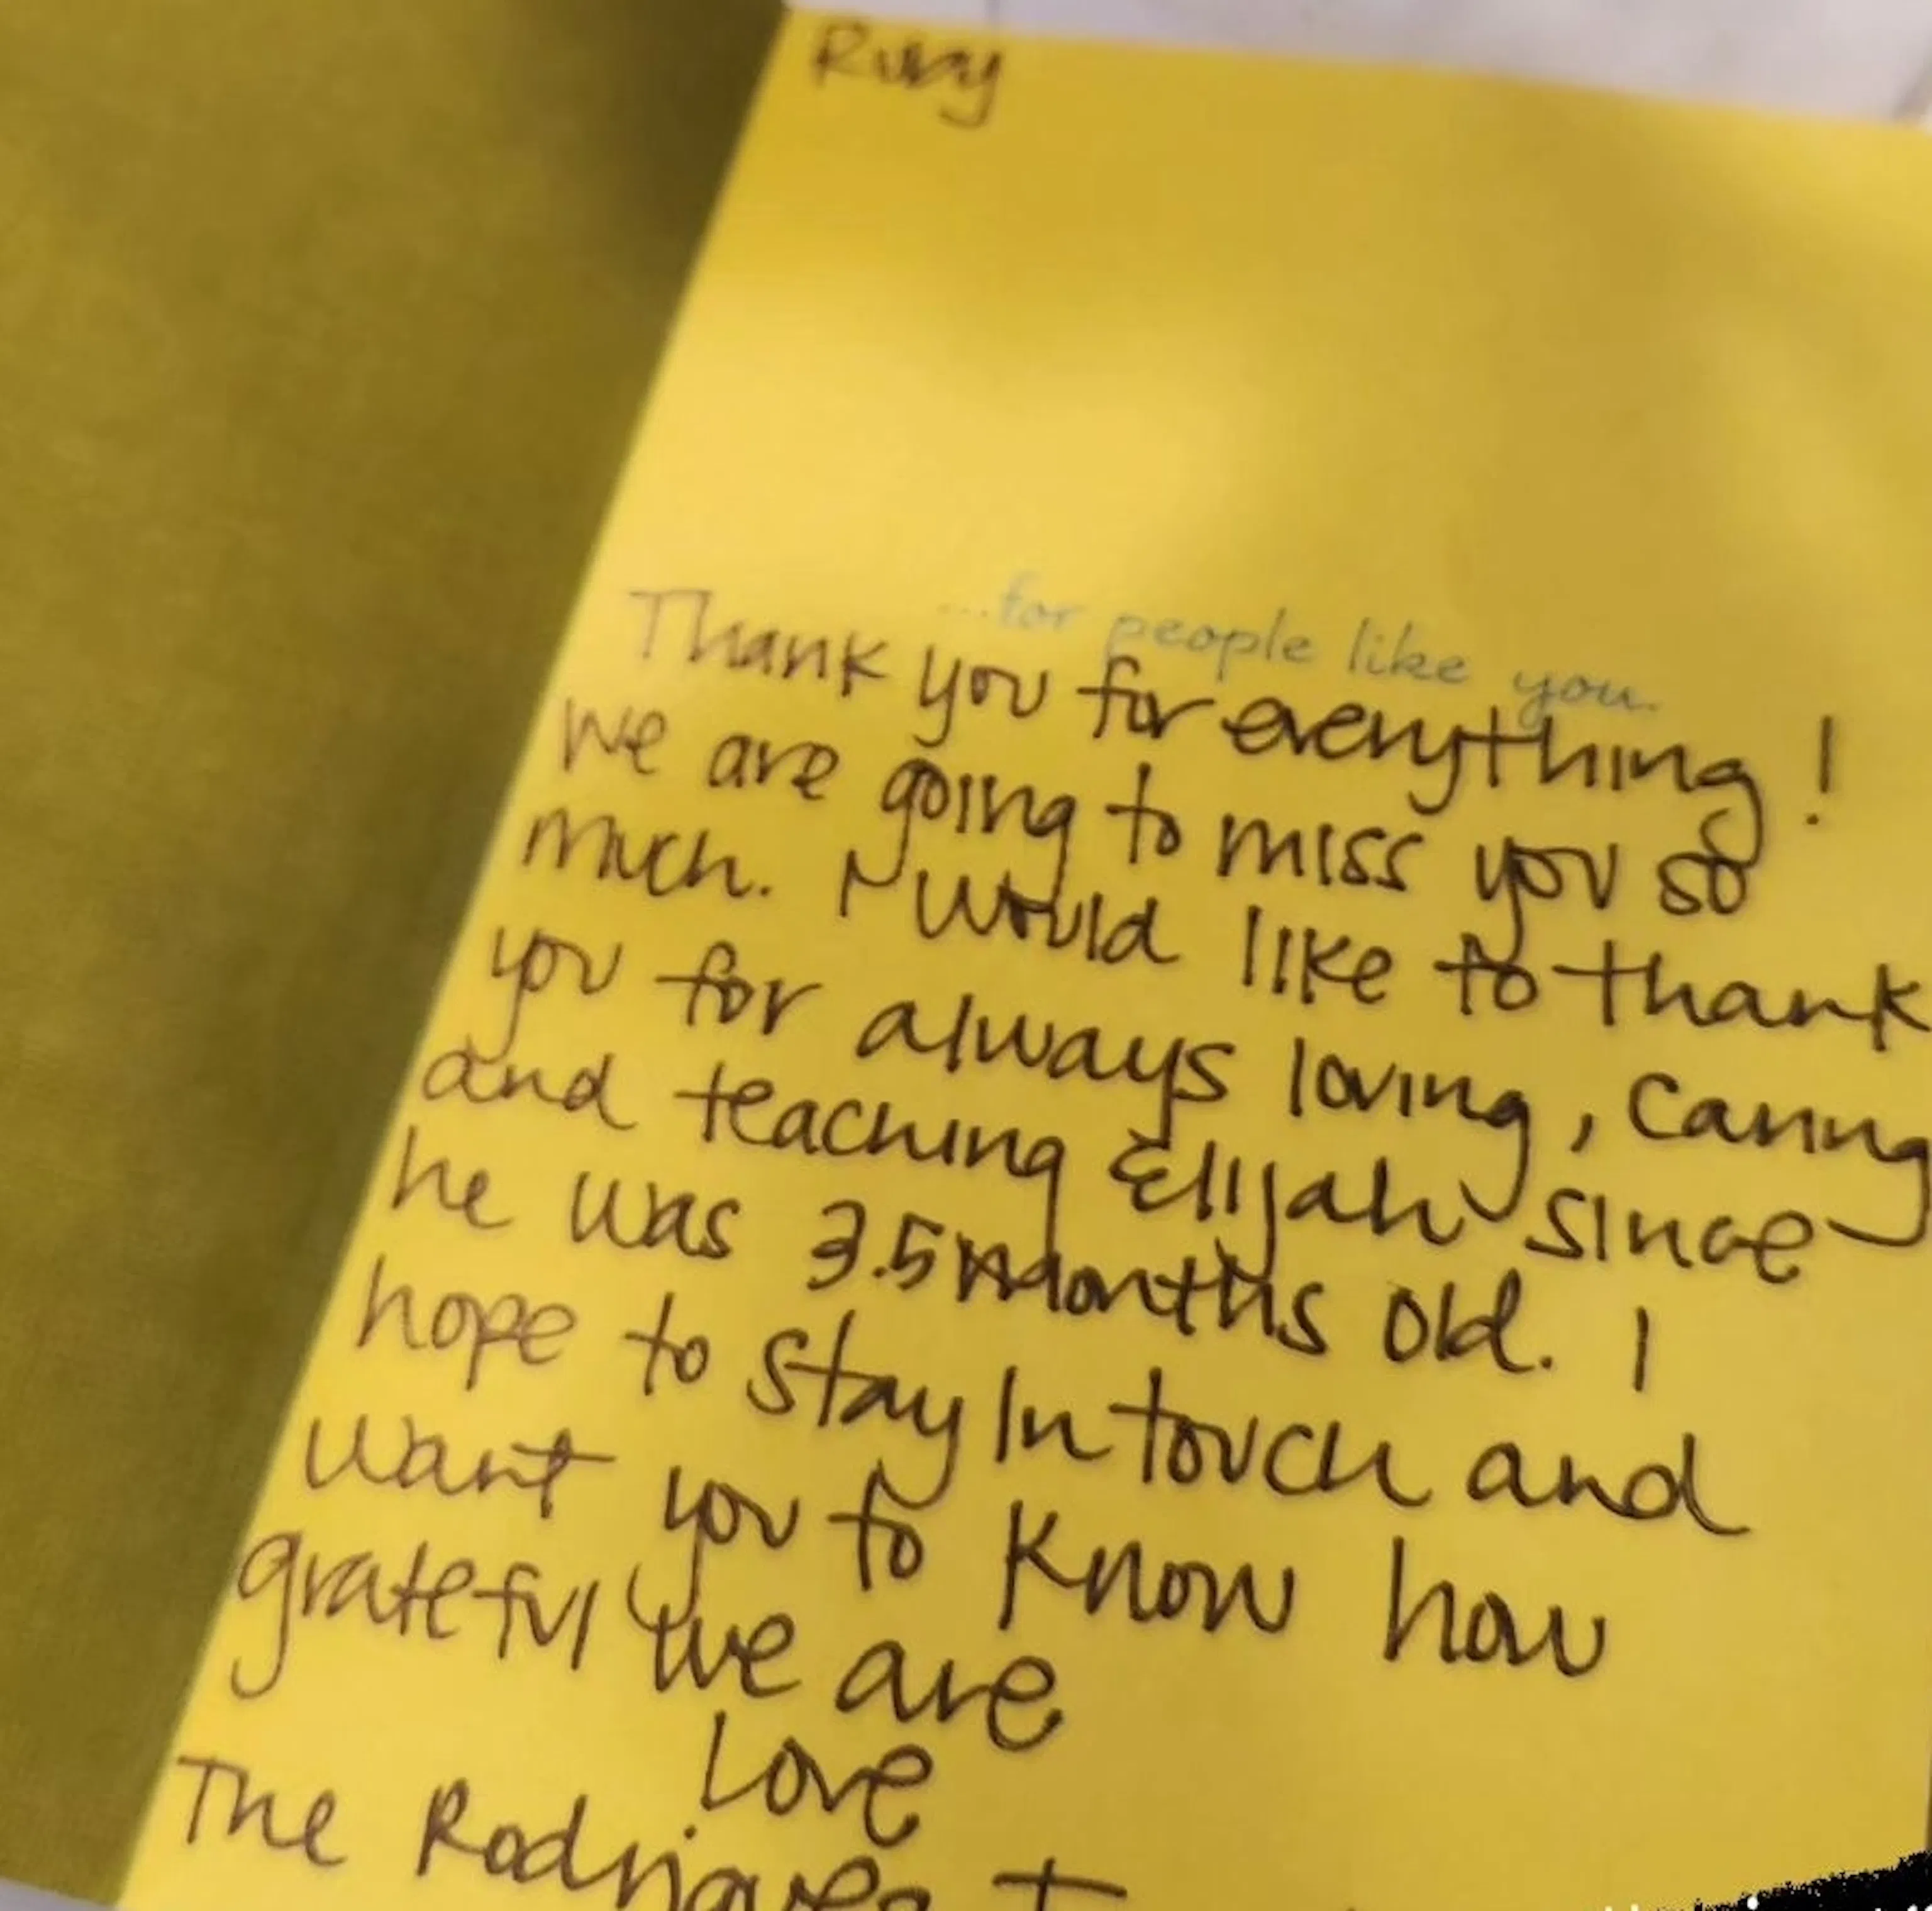 Ruby
...for people like you.
Thank you for everything!
We are going to miss you so
much. I would like to thank
you for always loving, caring
and teaching Elijah since
he was 3.5 months old. I
hope to stay in touch and
want you to know how
grateful we are
Love
The Rodriguez